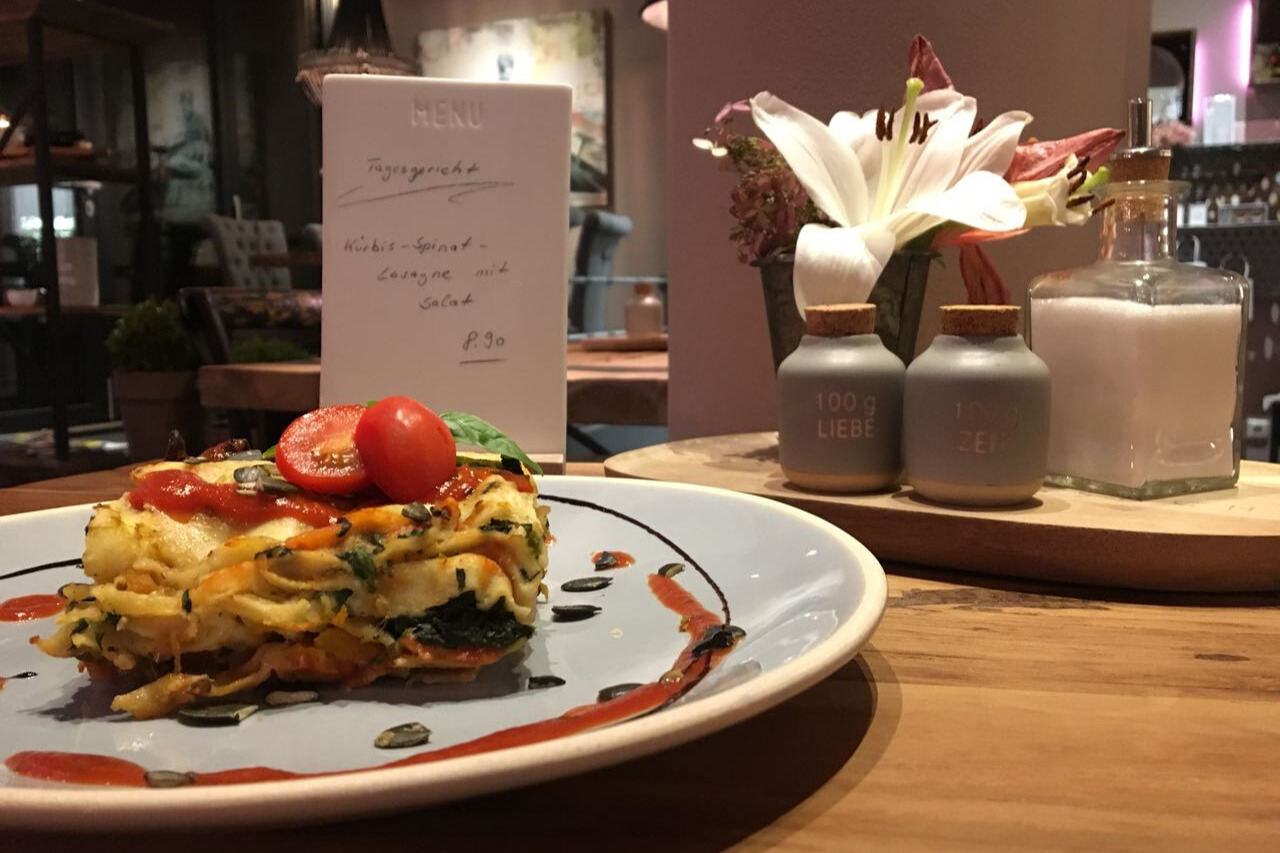 MENU
Tagesgericht
Kürbis-Spinat-
Lasagne mit
Salat
8.90
100 g
LIEBE
100 g
ZEIT